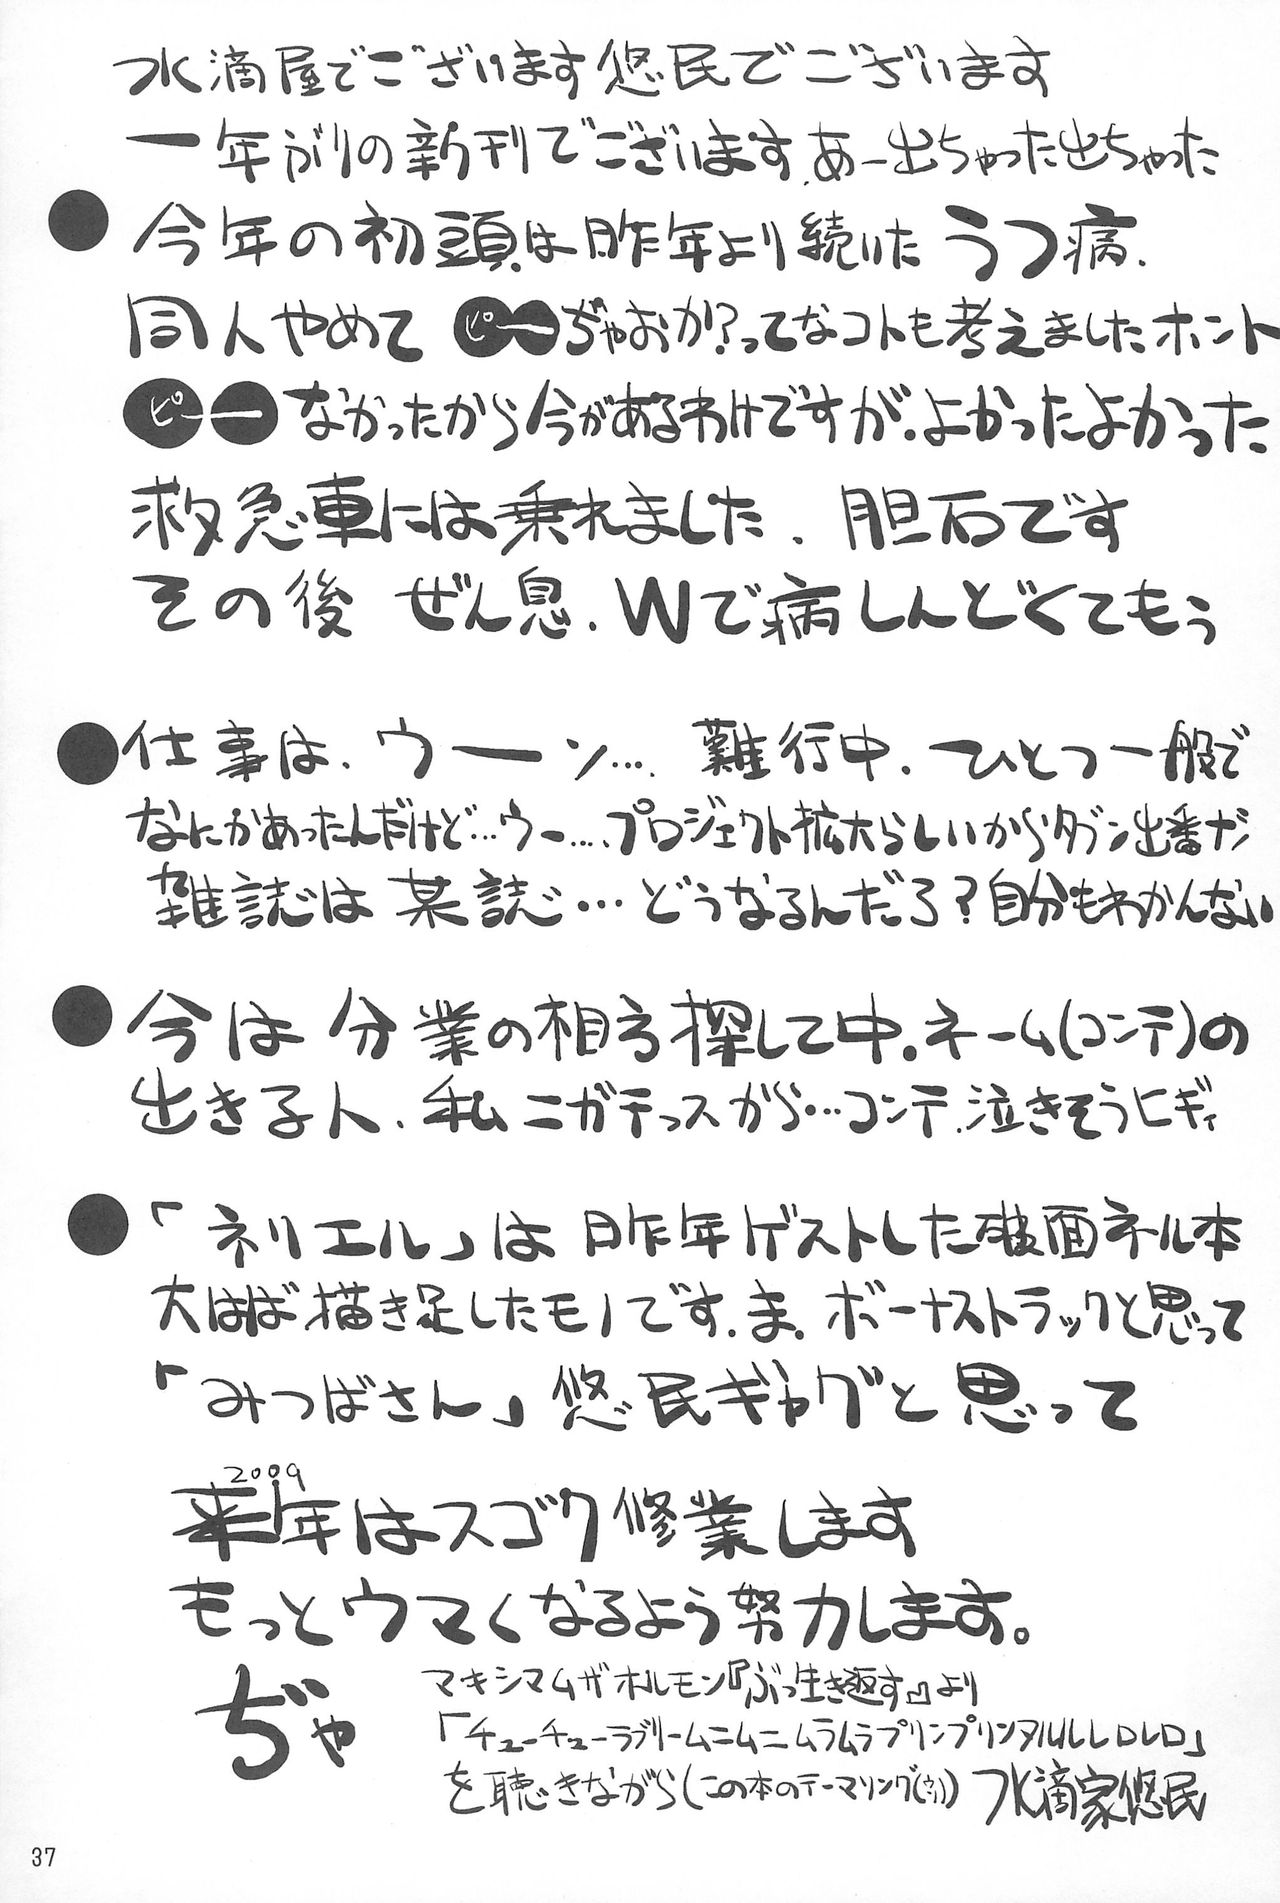 水滴屋でございます 悠民でございます
一年ぶりの新刊でございます、あー出ちゃった出ちゃった
● 今年の初頭は昨年より続いたうつ病、
同人やめて ピーぢゃおか?ってなコトも考えましたホント
ピーなかったから今があるわけですが、よかったよかった
救急車には乗れました、胆石です
その後 ぜん息、Wで病しんどくてもう
● 仕事は、ウーン… 難行中、ひとつ一般で
なにかあったんだけど…ウー…、プロジェクト拡大らしいからタブン出番ナシ
雑誌は某誌…どうなるんだろ?自分もわかんない
● 今は分業の相方探して中。ネーム(コンテ)の
出きる人、私ニガテっスから…コンテ、泣きそうヒギィ
● 「ネリエル」は昨年ゲストした破面ネル本
大はば描き足したモノです、ま、ボーナストラックと思って
「みつばさん」悠民ギャグと思って
2009
来年はスゴク修業します
もっとウマくなるよう努力します。
ぢゃ
マキシマムザホルモン『ぶっ生き返す』より
「チューチューラブリームニムニムラムラプリンプリンヌルルレロレロ」
を聴きながら(この本のテーマソング(ウソ)) 水滴家悠民
37